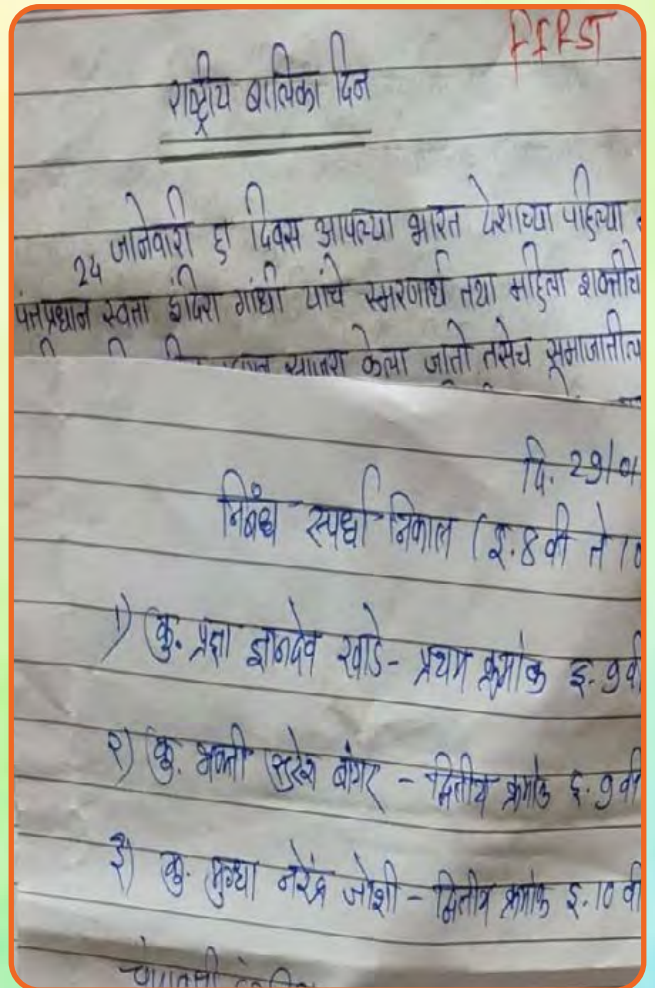 FIRST
राष्ट्रीय बालिका दिन
24 जानेवारी हा दिवस आपल्या भारत देशाच्या पहिल्या
पंतप्रधान स्वता इंदिरा गांधी यांचे स्मरणार्थ तथा महिला शक्तीचे
साजरा केला जातो तसेच समाजातील
दि. 29/01
निबंध स्पर्धा निकाल (इ. 8 वी ते 10
१) कु. प्रज्ञा ज्ञानदेव खाडे - प्रथम क्रमांक इ. 9 वी
२) कु. भक्ती सुरेश बांगर - द्वितीय क्रमांक इ. 9 वी
३) कु. मुग्धा नरेंद्र जोशी - द्वितीय क्रमांक इ. 10 वी